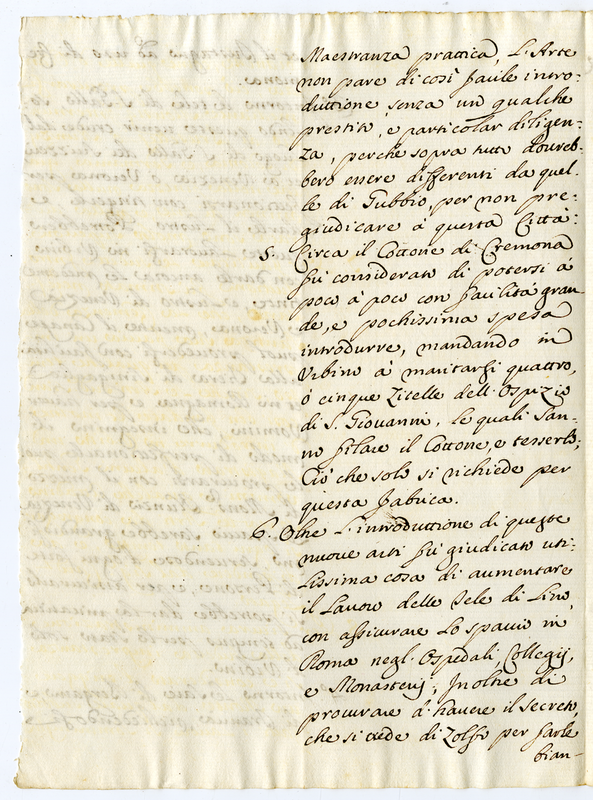 Maestranza prattica, L'Arte
non pare di così facile intro-
duttione senza un qualche
prestito, e particolar diligen-
za, perche sopra tutto dovreb-
bero essere differenti da quel-
le di Gubbio, per non pre-
giudicare à questa Città:
5. Circa il Cottone di Cremona
fù considerato di potersi à
poco à poco con facilità gran-
de, e pochissima spesa
introdurre, mandando in
Urbino à maritarsi quattro,
ò cinque Zitelle dell'Ospizio
di S. Giovanni, le quali san-
no filare il Cottone, e tesserlo,
Ciò che solo si richiede per
questa fabrica.
6. Oltre l'introduttione di queste
nuove arti fù giudicato uti-
lissima cosa di aumentare
il Lavoro delle Tele di Lino,
con assicurare lo spaccio in
Roma negl'Ospedali, Collegij,
e Monasterij; Inoltre di
procurare d'havere il secreto,
che si crede di Zolfo per farle
bian-